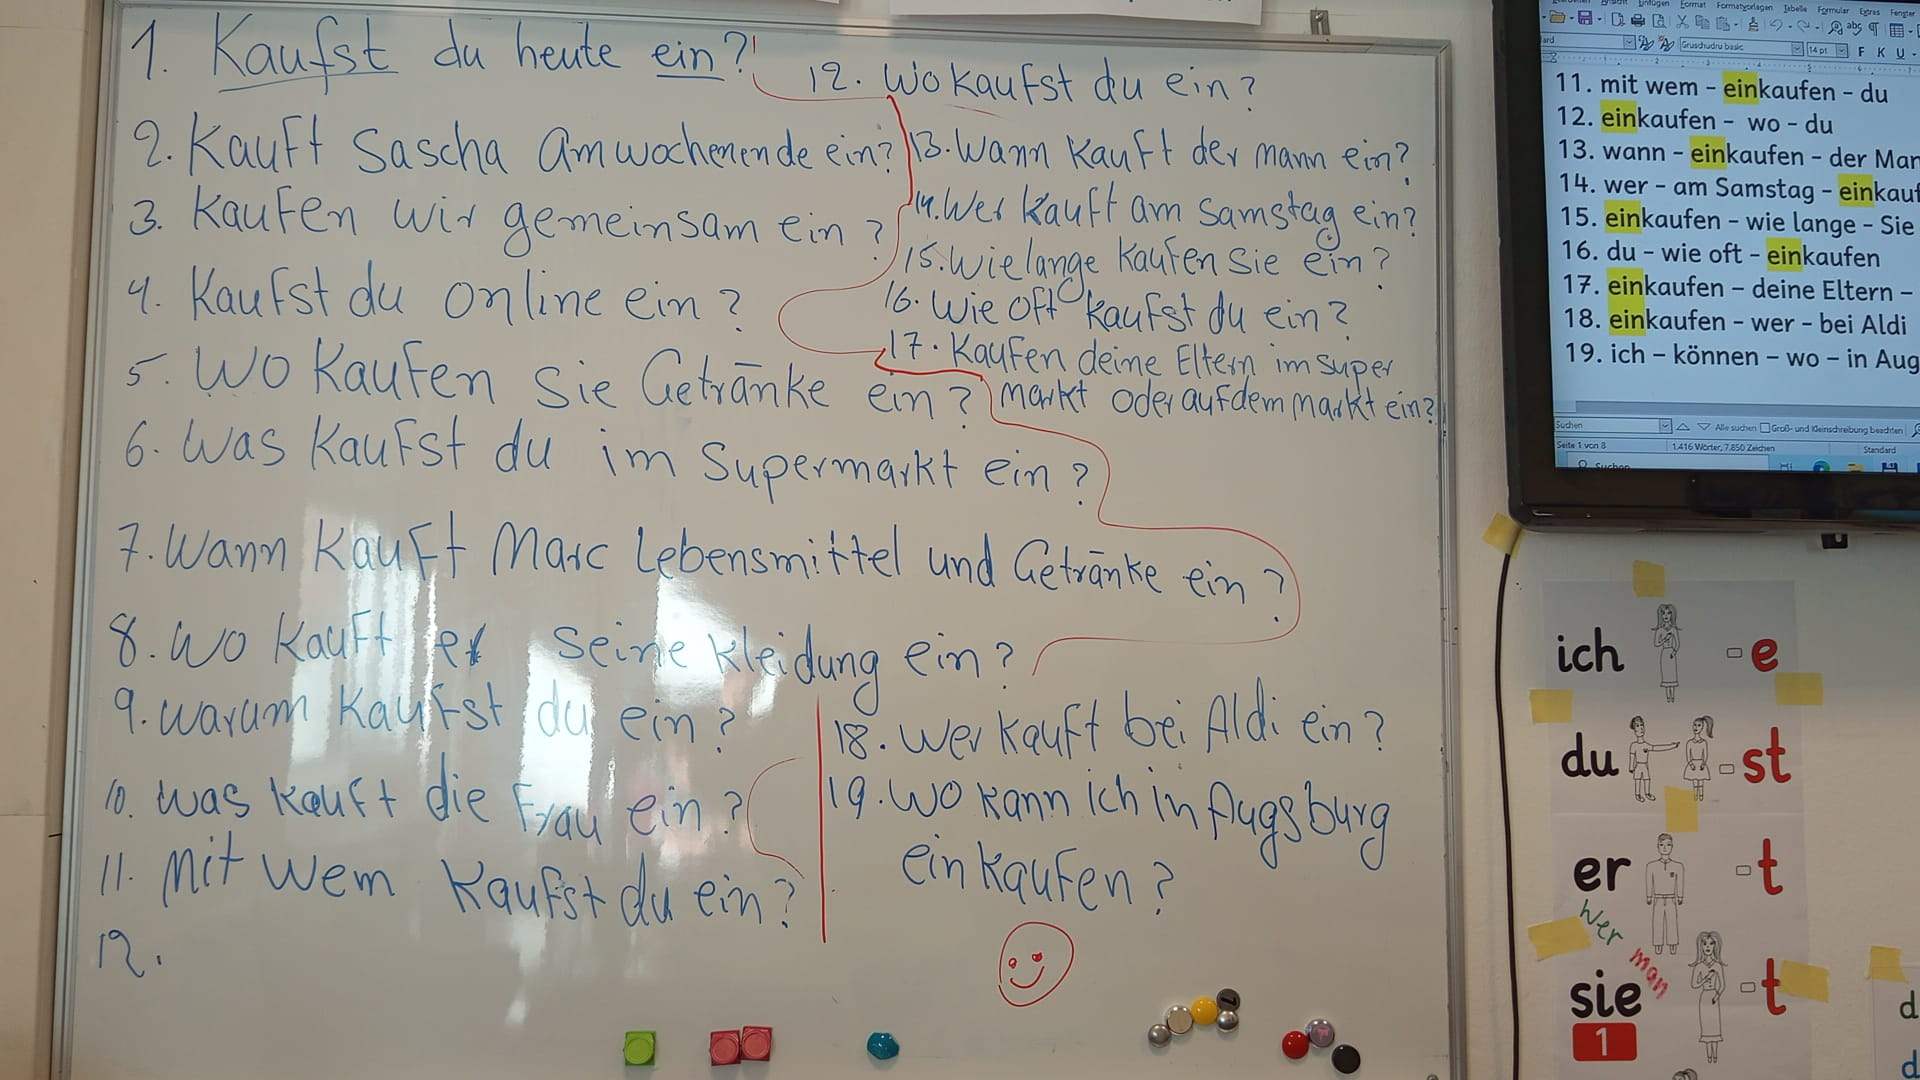 1. Kaufst du heute ein?
2. Kauft Sascha am wochenende ein?
3. Kaufen wir gemeinsam ein?
4. Kaufst du online ein?
5. Wo Kaufen Sie Getränke ein?
6. Was Kaufst du im Supermarkt ein?
7. Wann Kauft Marc Lebensmittel und Getränke ein?
8. Wo Kauft er seine Kleidung ein?
9. Warum Kaufst du ein?
10. Was kauft die Frau ein?
11. Mit Wem Kaufst du ein?
12.
12. Wo kaufst du ein?
13. Wann Kauft der mann ein?
14. Wer Kauft am Samstag ein?
15. Wie lange Kaufen Sie ein?
16. Wie oft kaufst du ein?
17. Kaufen deine Eltern im super
markt oder auf dem markt ein?
18. Wer kauft bei Aldi ein?
19. Wo kann ich in Augsburg
einkaufen?
Format Formatvorlagen Tabelle Formular Extras Fenster
Gruschudru basic 14 pt F K U
11. mit wem – einkaufen – du
12. einkaufen – wo – du
13. wann – einkaufen – der Man
14. wer – am Samstag – einkauf
15. einkaufen – wie lange – Sie
16. du – wie oft – einkaufen
17. einkaufen – deine Eltern –
18. einkaufen – wer – bei Aldi
19. ich – können – wo – in Aug
Suchen Alle suchen Groß- und Kleinschreibung beachten
Seite 1 von 8 1.416 Wörter, 7.850 Zeichen Standard
Suchen
ich -e
du -st
er -t
wer
man
sie -t
1
d
d